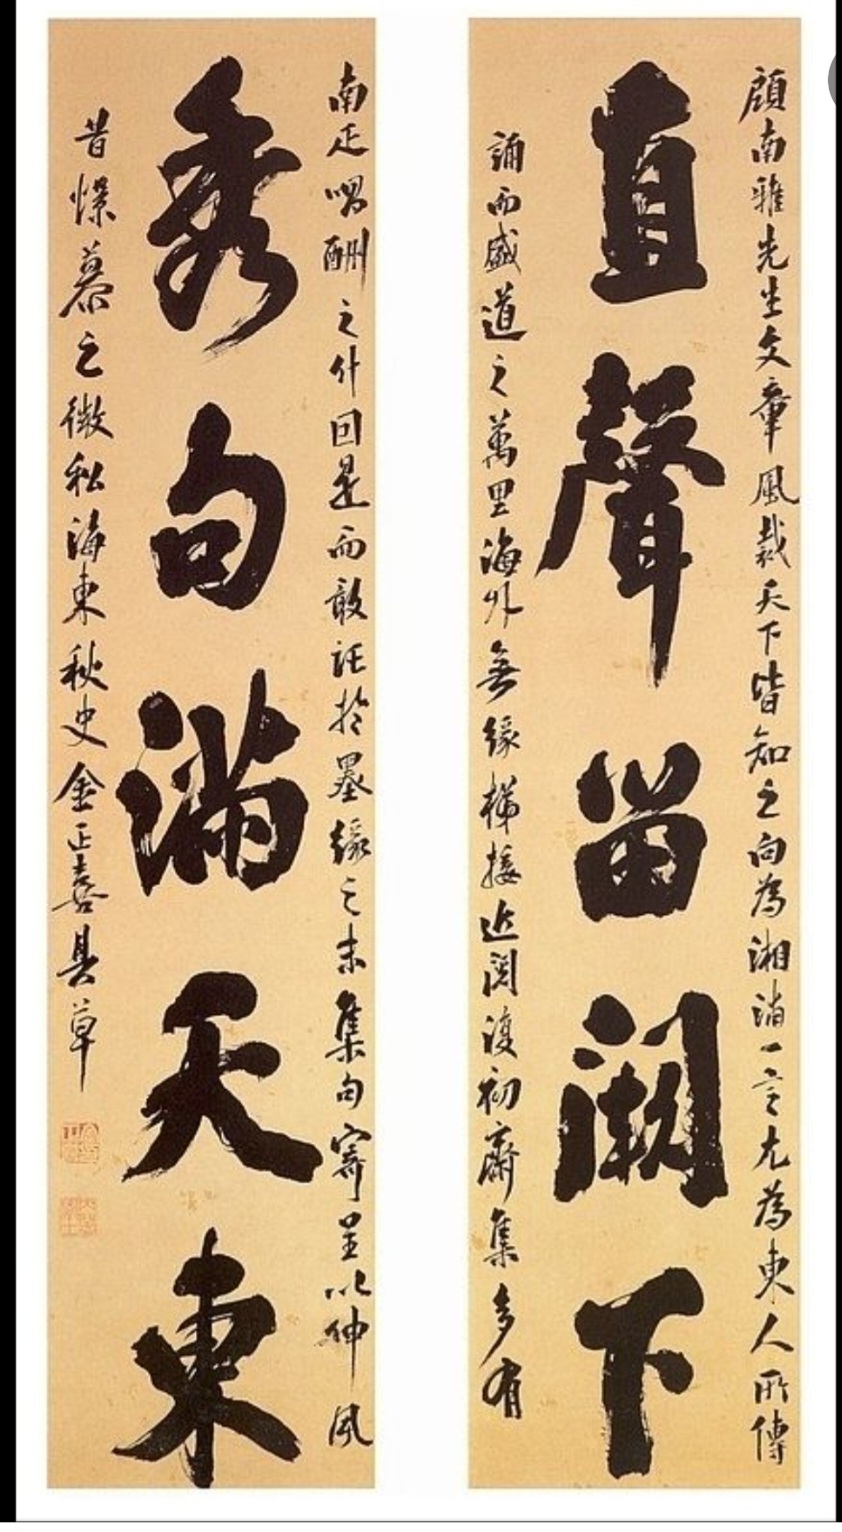 顧南雅先生文章風裁天下皆知之向為湘浦一言尤為東人所傳
直聲留闕下
誦而盛道之萬里海外無緣梯接近閱復初齋集多有
南疋唱酬之什因是而敢託於墨緣之末集句寄呈以伸夙
秀句滿天東
昔懷慕之微私海東秋史金正喜具草